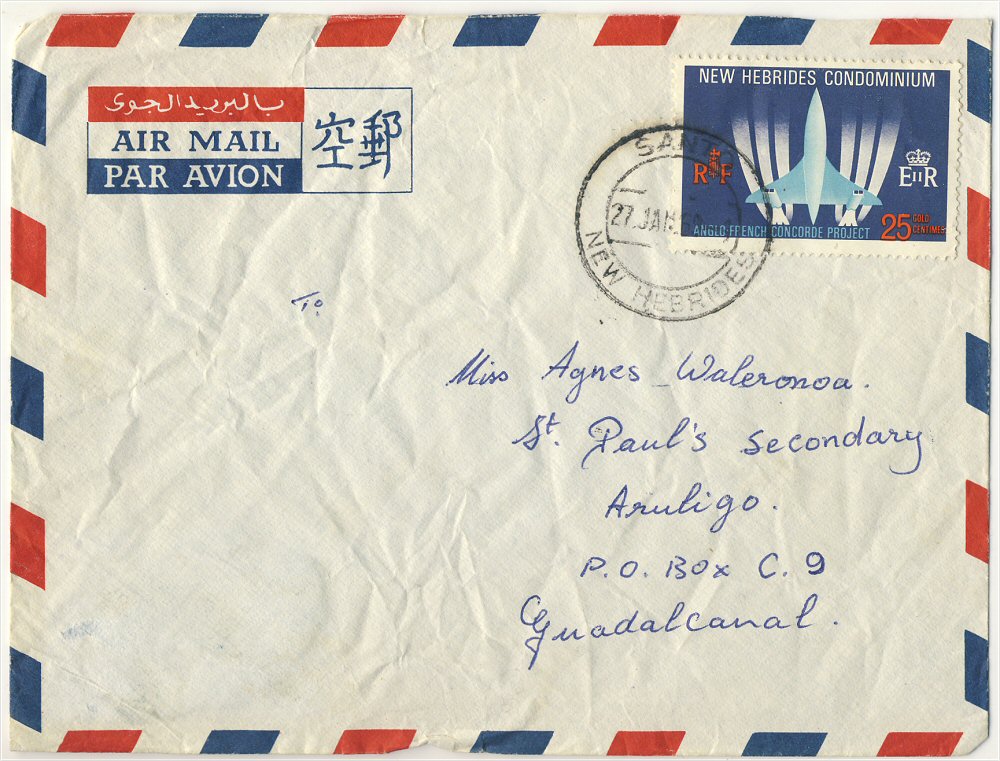 بالبريد الجوى
AIR MAIL
PAR AVION
空郵
NEW HEBRIDES CONDOMINIUM
RF
EIIR
ANGLO-FRENCH CONCORDE PROJECT
25 GOLD CENTIMES
SANTO
27.JAN
NEW HEBRIDES
To
Miss Agnes Waleronoa.
St. Paul's Secondary
Aruligo.
P.O. Box C.9
Guadalcanal.